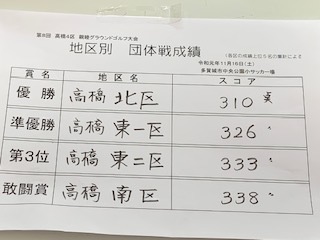 第8回 高橋4区 親睦グラウンドゴルフ大会
地区別 団体戦成績
(各区の成績上位5名の集計による
令和元年11月16日(土)
多賀城市中央公園小サッカー場
賞名 スコア
優勝 高橋 北区 310 点
準優勝 高橋 東一区 326 〃
第3位 高橋 東二区 333 〃
敢闘賞 高橋 南区 338 〃